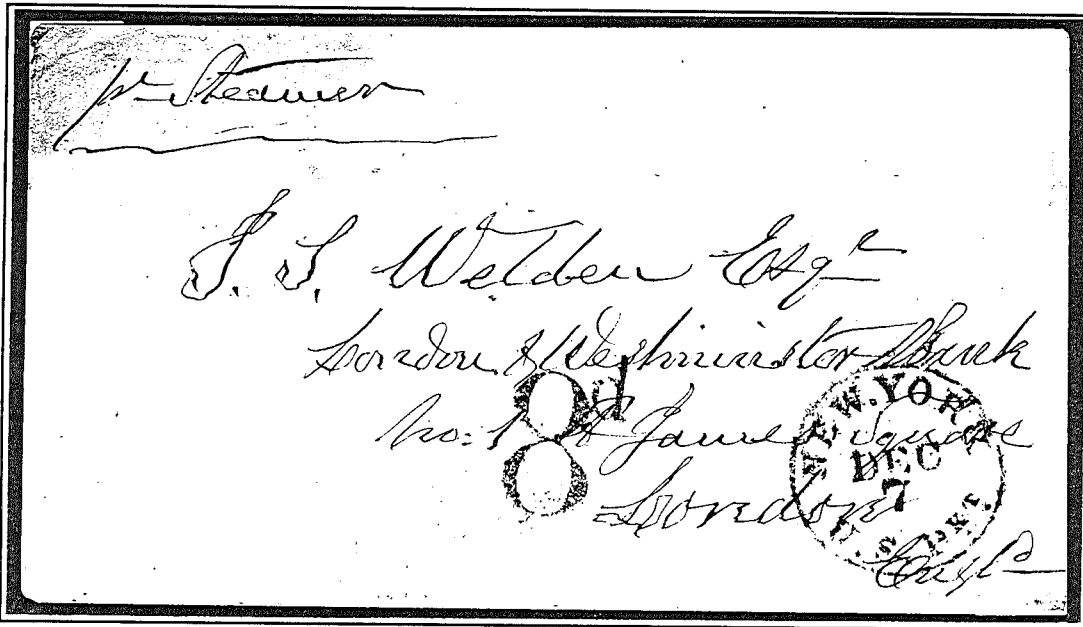 pr Steamer
S. S. Welden Esqr
London & Westminster Bank
No: 1 St James Square
London
Engld
8d
NEW.YORK
DEC
7
U.S. PKT.